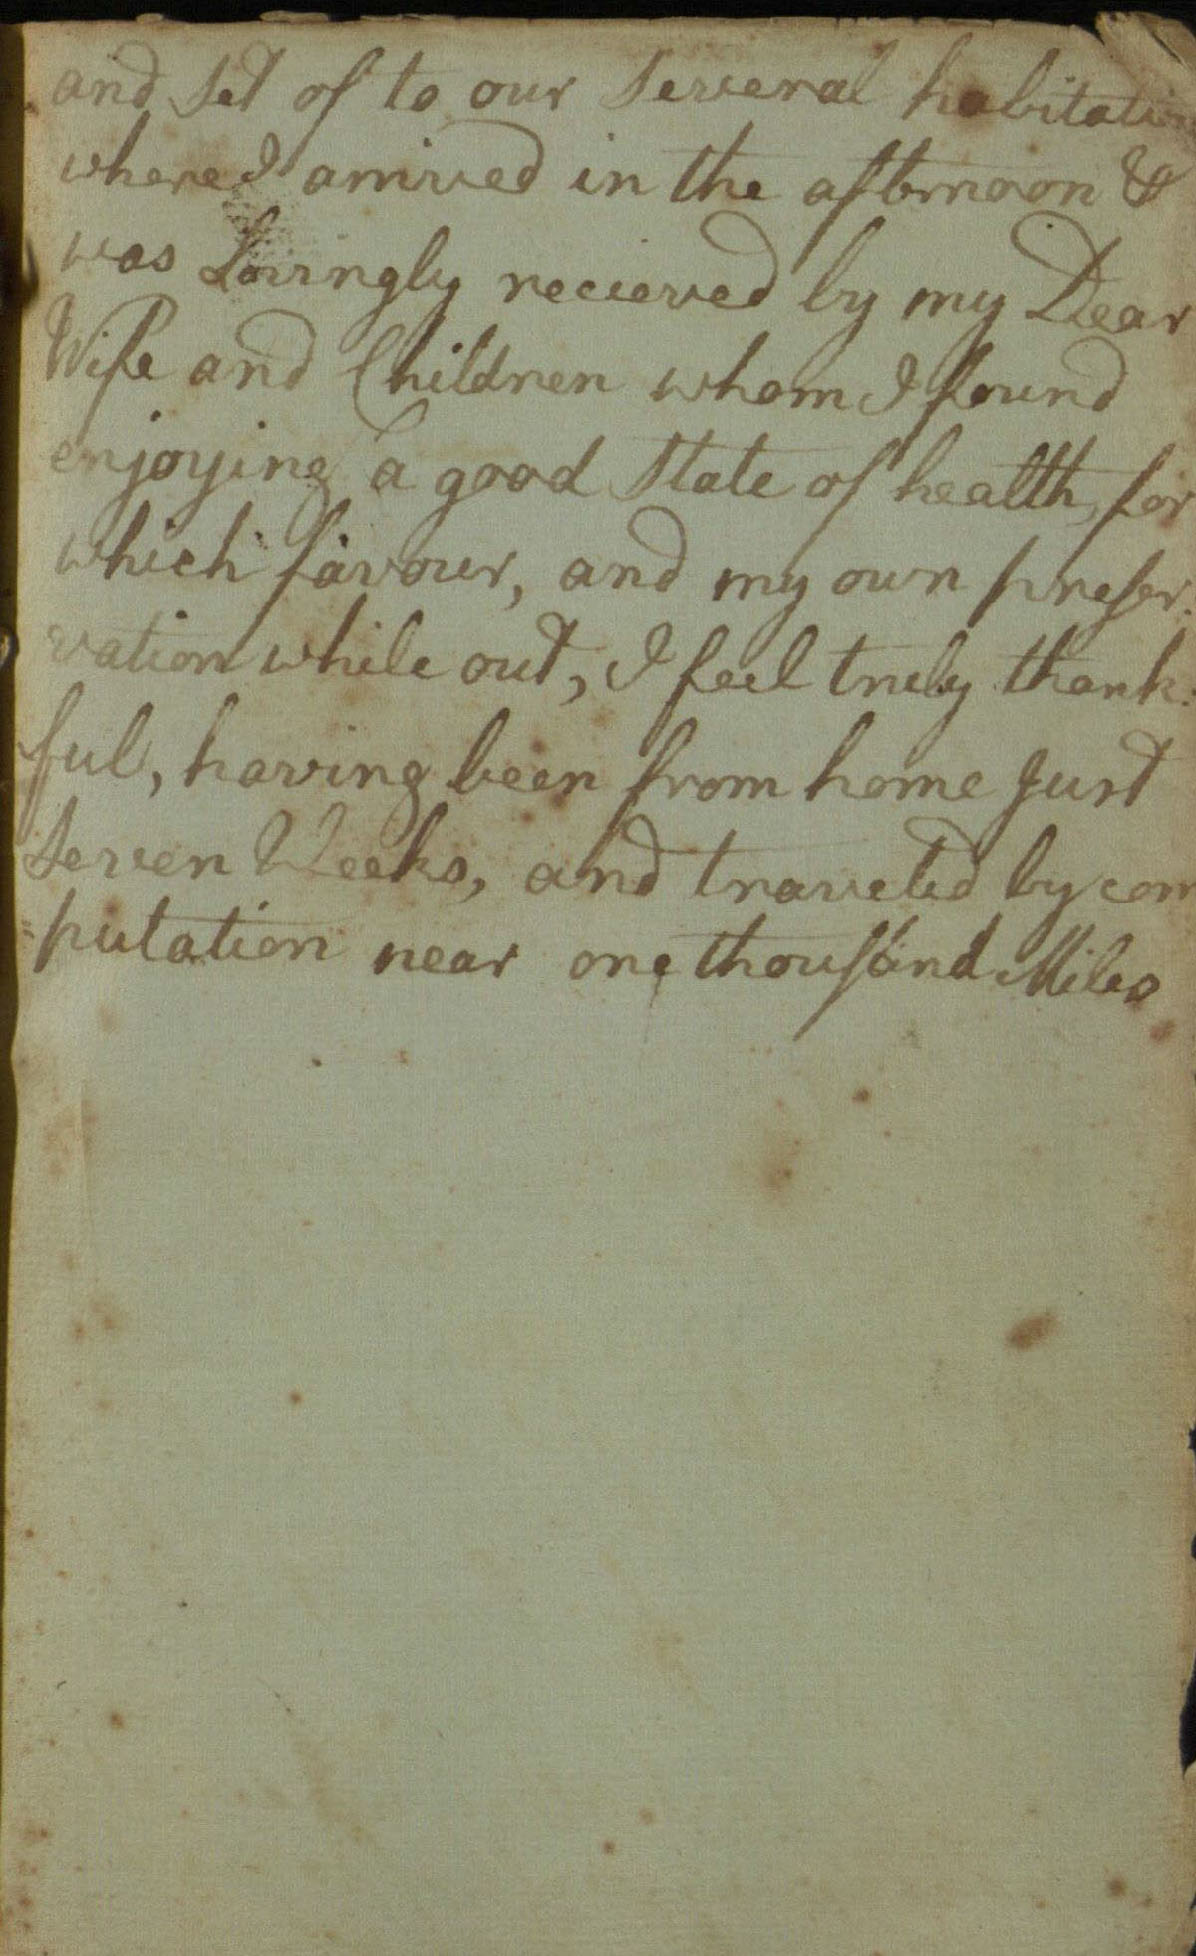 and set of to our several habitation
where I arrived in the afternoon &
was Lovingly recieved by my Dear
Wife and Children whom I found
enjoying a good state of health, for
which favour, and my own preser:
vation while out, I feel truly thank:
ful, having been from home Just
seven Weeks, and traveled by com
=putation near one thousand Miles